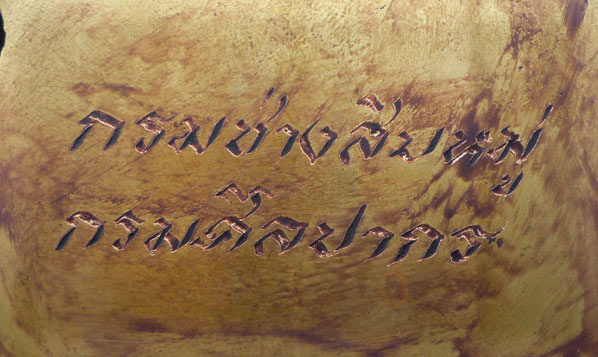 กรมช่างสิบหมู่
กรมศิลปากร